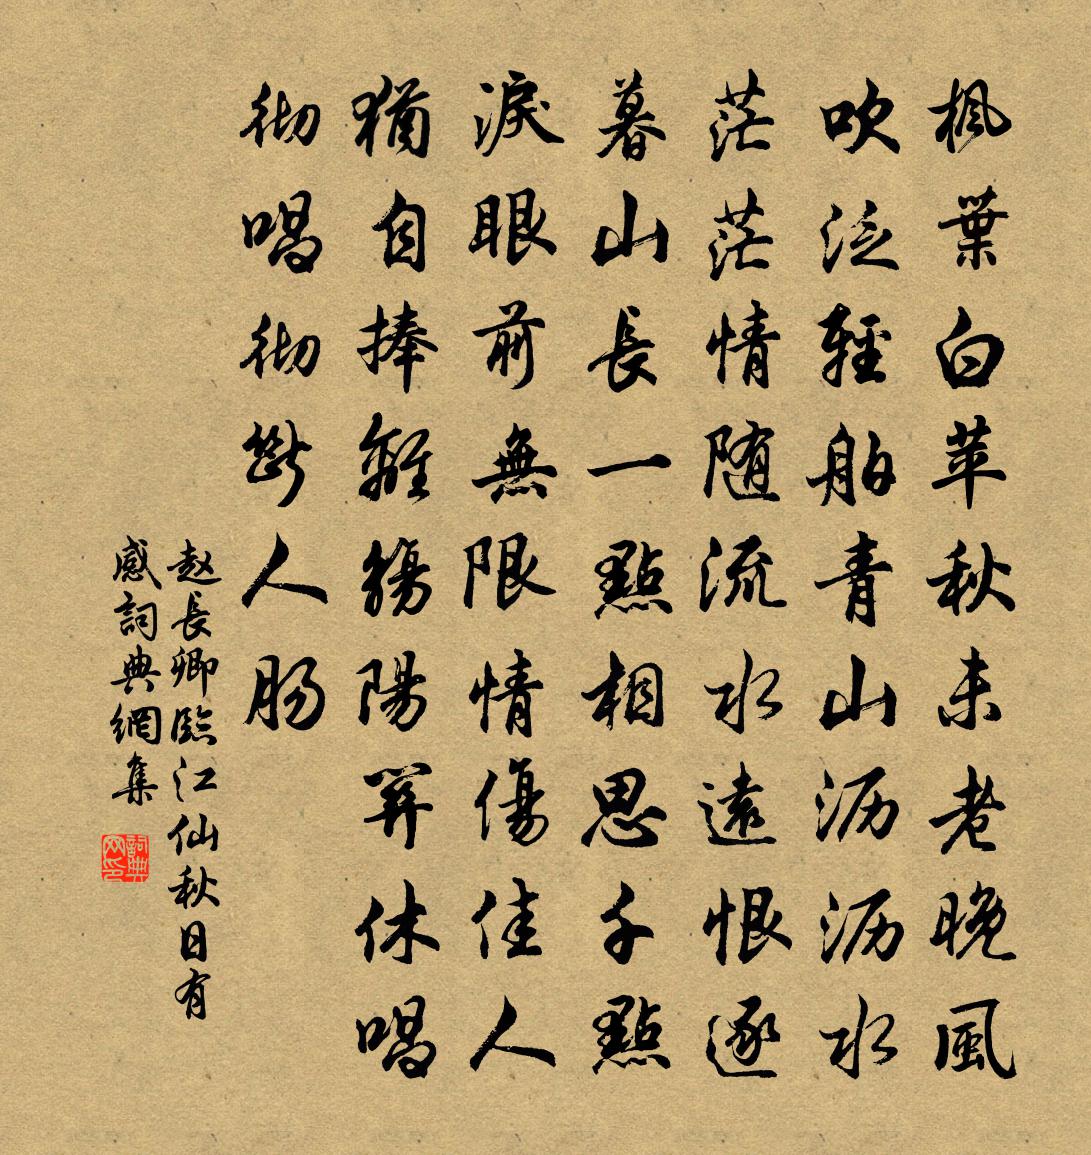 楓葉白苹秋未老晚風
吹泛輕舶青山沥沥水
茫茫情随流水遠恨逐
暮山長一點相思千點
淚眼前無限情傷佳人
猶自捧離觴陽關休唱
彻唱彻斷人肠
赵長卿臨江仙秋日有
感詞典網集
詞典
网印